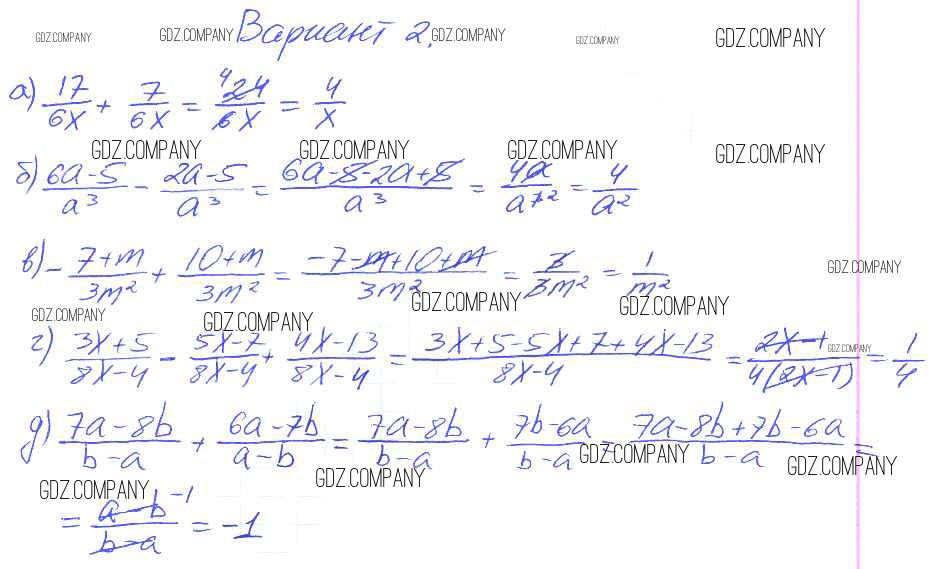 GDZ.COMPANY GDZ.COMPANY Вариант 2. GDZ.COMPANY GDZ.COMPANY GDZ.COMPANY
а) 17/6x + 7/6x = 24/6x = 4/x
GDZ.COMPANY GDZ.COMPANY GDZ.COMPANY GDZ.COMPANY
б) (6a-5)/a³ - (2a-5)/a³ = (6a-5-2a+5)/a³ = 4a/a³ = 4/a²
в) - (7+m)/3m² + (10+m)/3m² = (-7-m+10+m)/3m² = 3/3m² = 1/m²
GDZ.COMPANY
GDZ.COMPANY GDZ.COMPANY GDZ.COMPANY GDZ.COMPANY
г) (3x+5)/(8x-4) - (5x-7)/(8x-4) + (4x-13)/(8x-4) = (3x+5-5x+7+4x-13)/(8x-4) = (2x-1)/(4(2x-1)) = 1/4
GDZ.COMPANY
д) (7a-8b)/(b-a) + (6a-7b)/(a-b) = (7a-8b)/(b-a) + (7b-6a)/(b-a) = (7a-8b+7b-6a)/(b-a) =
GDZ.COMPANY GDZ.COMPANY GDZ.COMPANY GDZ.COMPANY
= (a-b)/(b-a) -1 = -1